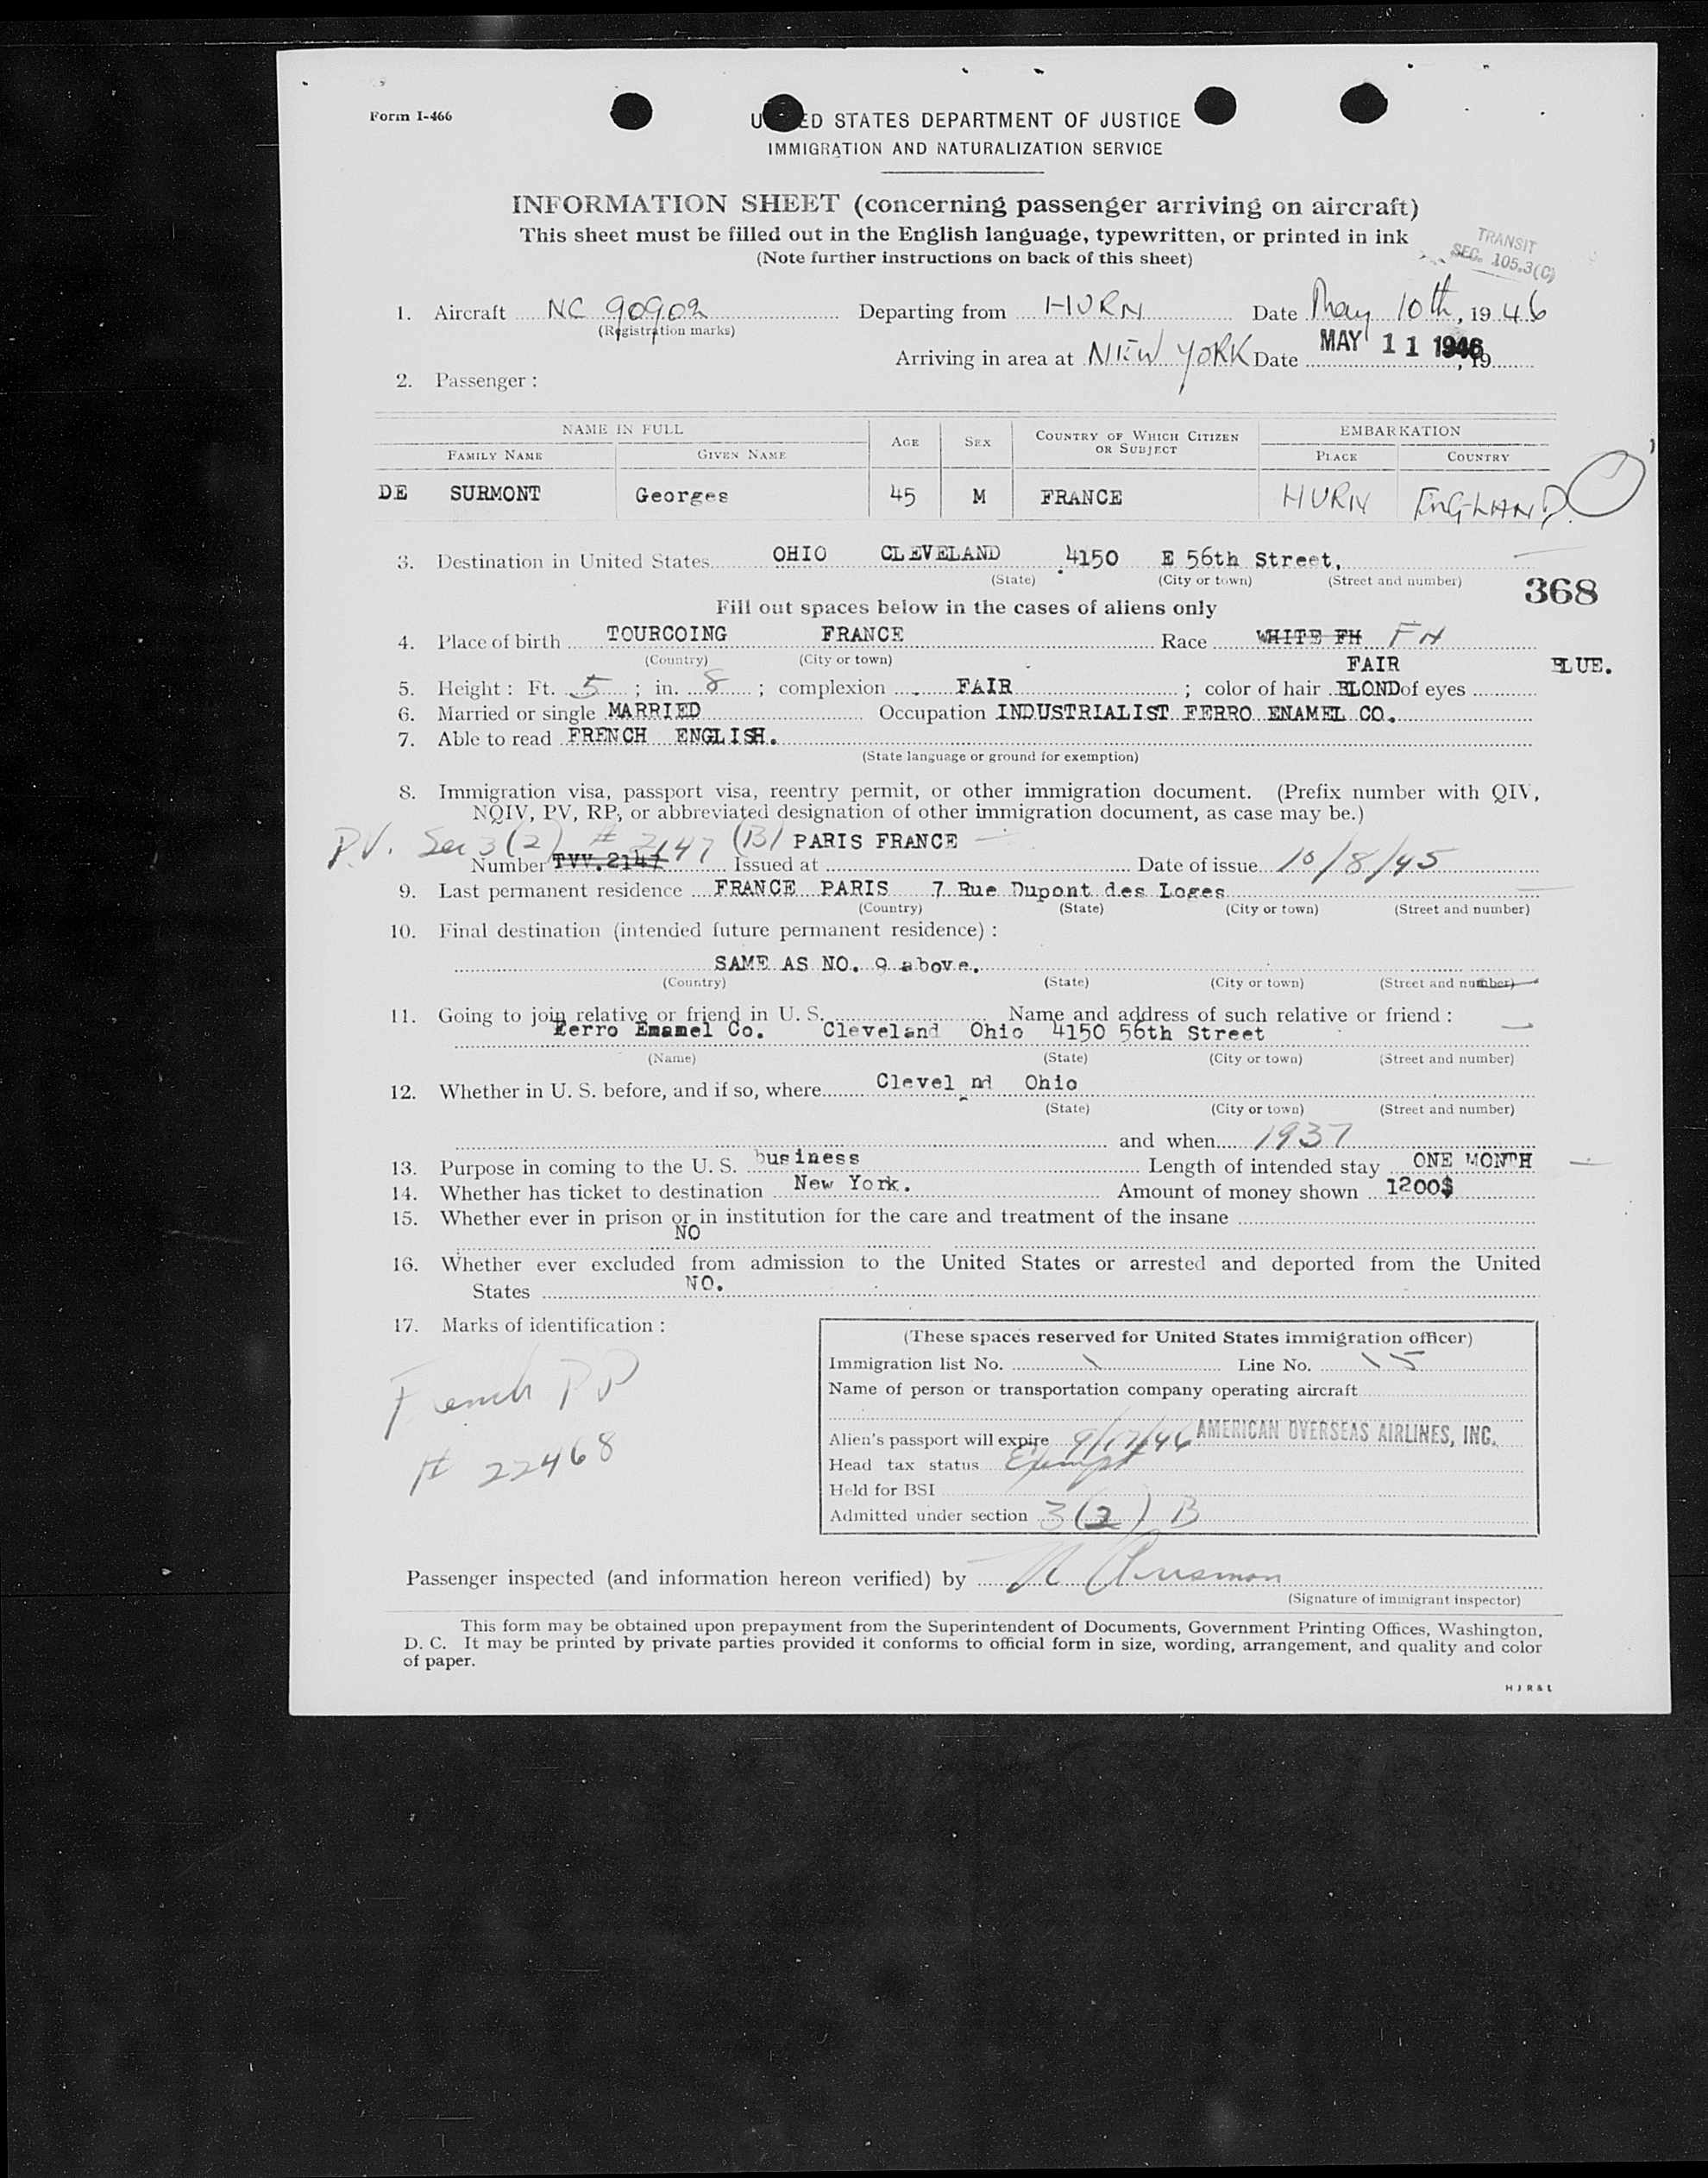 Form I-466
UNITED STATES DEPARTMENT OF JUSTICE
IMMIGRATION AND NATURALIZATION SERVICE
INFORMATION SHEET (concerning passenger arriving on aircraft)
This sheet must be filled out in the English language, typewritten, or printed in ink
(Note further instructions on back of this sheet)
TRANSIT
SEC. 105.3(C)
1. Aircraft NC 90902 Departing from HURN Date May 10th, 1946
(Registration marks)
Arriving in area at NEW YORK Date MAY 11 1946, 19
2. Passenger :
NAME IN FULL AGE SEX COUNTRY OF WHICH CITIZEN OR SUBJECT EMBARKATION
FAMILY NAME GIVEN NAME PLACE COUNTRY
DE SURMONT Georges 45 M FRANCE HURN ENGLAND
3. Destination in United States OHIO CLEVELAND 4150 E 56th Street,
(State) (City or town) (Street and number)
368
Fill out spaces below in the cases of aliens only
4. Place of birth TOURCOING FRANCE Race WHITE FH FH
(Country) (City or town)
FAIR BLUE.
5. Height : Ft. 5 ; in. 8 ; complexion FAIR ; color of hair BLOND of eyes
6. Married or single MARRIED Occupation INDUSTRIALIST FERRO ENAMEL CO.
7. Able to read FRENCH ENGLISH.
(State language or ground for exemption)
8. Immigration visa, passport visa, reentry permit, or other immigration document. (Prefix number with QIV,
NQIV, PV, RP, or abbreviated designation of other immigration document, as case may be.)
P.V. Sec 3(2) # 2147 (B) PARIS FRANCE
Number TVV.2147 Issued at Date of issue 10/8/45
9. Last permanent residence FRANCE PARIS 7 Rue Dupont des Loges
(Country) (State) (City or town) (Street and number)
10. Final destination (intended future permanent residence) :
SAME AS NO. 9 above.
(Country) (State) (City or town) (Street and number)
11. Going to join relative or friend in U. S. Name and address of such relative or friend :
Ferro Enamel Co. Cleveland Ohio 4150 56th Street
(Name) (State) (City or town) (Street and number)
12. Whether in U. S. before, and if so, where Clevel nd Ohio
(State) (City or town) (Street and number)
and when 1937
13. Purpose in coming to the U. S. business Length of intended stay ONE MONTH
14. Whether has ticket to destination New York. Amount of money shown 1200$
15. Whether ever in prison or in institution for the care and treatment of the insane
NO
16. Whether ever excluded from admission to the United States or arrested and deported from the United
States NO.
17. Marks of identification :
French PP
# 22468
(These spaces reserved for United States immigration officer)
Immigration list No. 1 Line No. 15
Name of person or transportation company operating aircraft
AMERICAN OVERSEAS AIRLINES, INC.
Alien's passport will expire 9/17/46
Head tax status Exempt
Held for BSI
Admitted under section 3(2) B
Passenger inspected (and information hereon verified) by
(Signature of immigrant inspector)
This form may be obtained upon prepayment from the Superintendent of Documents, Government Printing Offices, Washington,
D. C. It may be printed by private parties provided it conforms to official form in size, wording, arrangement, and quality and color
of paper.
H J R & L